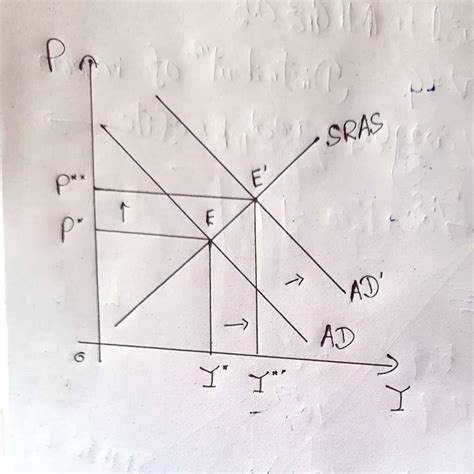 P
SRAS
P**
E'
P*
E
AD'
AD
0
Y*
Y**
Y